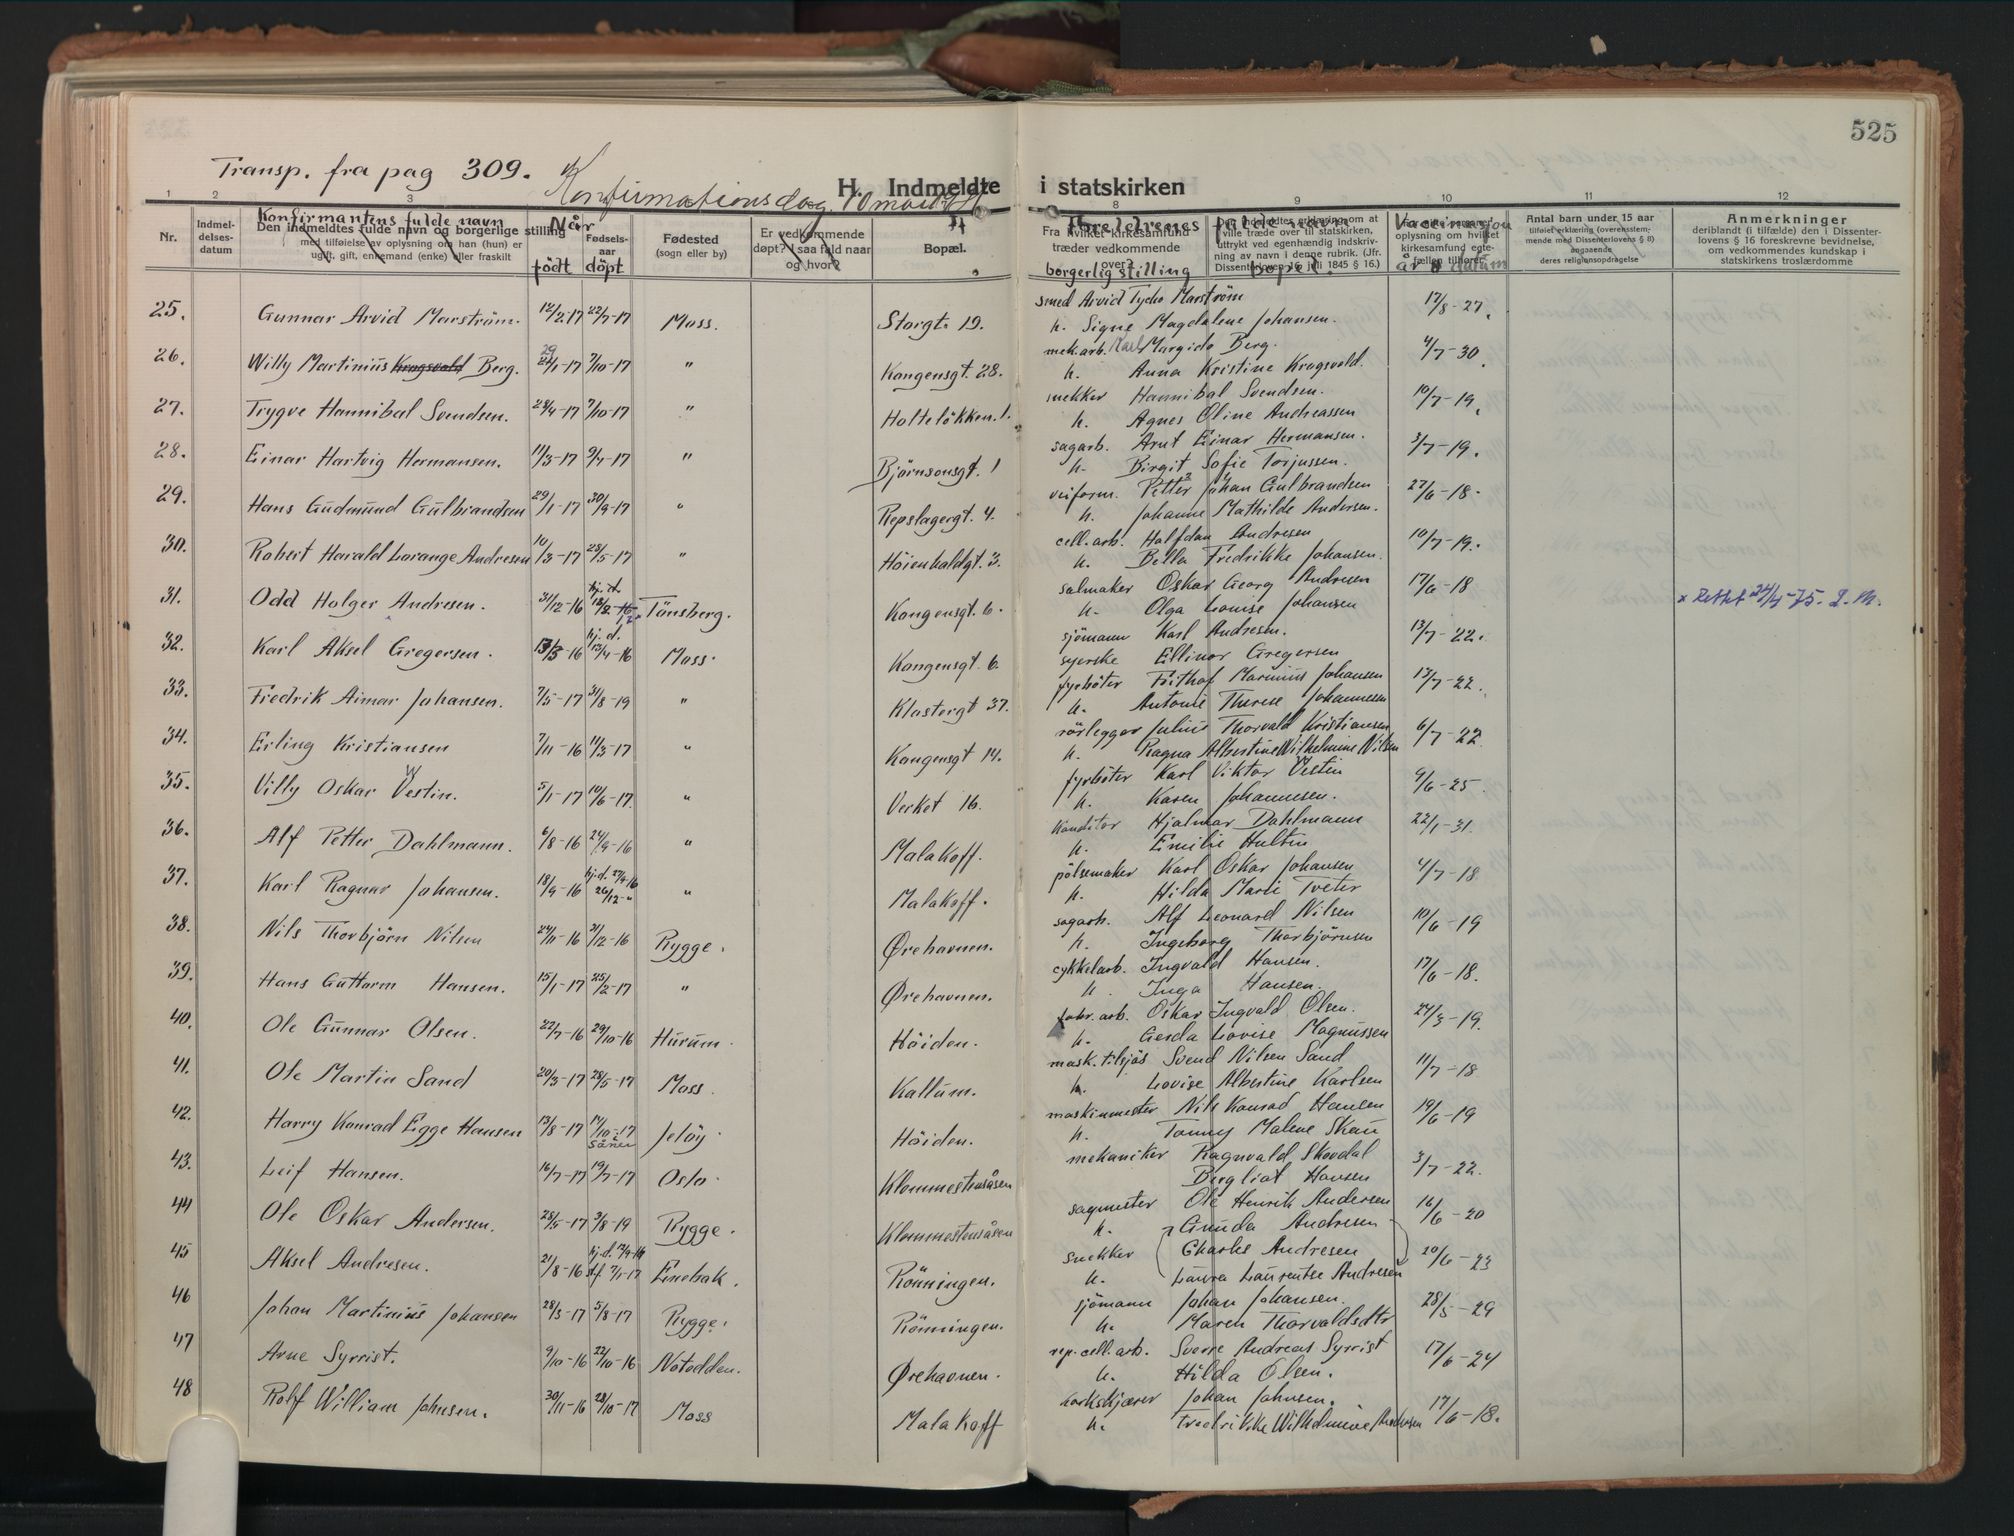 525
Transp. fra pag 309. Konfirmationsdag 10 mai
H. Indmeldte i statskirken
1 2 3 8 9 10 11 12
Nr. Indmeldelsesdatum
Konfirmantens fulde navn
Den indmeldtes fulde navn og borgerlige stilling
med tilføielse av oplysning om han (hun) er
ugift, gift, enkemand (enke) eller fraskilt
Når
Fødselsaar
födt döpt
Fødested
(sogn eller by)
Er vedkommende
døpt? I saa fald naar
og hvor?
Bopæl.
Foreldrenes fulde navn
borgerlig stilling bopel.
Fra hvilket kirkesamfund
træder vedkommende
over?
Den indmeldtes erklæring om at
ville træde over til statskirken,
uttrykt ved egenhændig indskrivning
av navn i denne rubrik. (Jfr.
Dissenterloven 16 juli 1845 § 16.)
Vaccinasjon
år datum
For gifte personer
oplysning om hvilket
kirkesamfund egtefællen
tilhører.
Antal barn under 15 aar
tilføiet erklæring (overensstemmende
med Dissenterlovens § 8)
angaaende
deres religionsopdragelse
Anmerkninger
deriblandt (i tilfælde) den i Dissenterlovens
§ 16 foreskrevne bevidnelse,
om vedkommendes kundskap i
statskirkens troslærdomme
25. Gunnar Arvid Marström. 12/2-17 22/7-17 Moss. Storgt. 19. smed Arvid Tycho Marström 17/8-27.
h. Signe Magdalene Johansen.
26. Willy Martinius Krogsvold Berg. 29/1-17 7/10-17 " Kongensgt. 28. mek.arb. Karl Margido Berg. 4/7-30.
h. Anna Kristine Krogsvold.
27. Trygve Hannibal Svendsen. 24/4-17 7/10-17 " Holteløkken 1. snekker Hannibal Svendsen. 10/7-19.
h. Agnes Oline Andreassen
28. Einar Hartvig Hermansen. 11/3-17 9/4-17 " Bjørnsonsgt. 1 sagarb. Arnt Einar Hermansen. 3/7-19.
h. Birgit Sofie Torjussen.
29. Hans Gudmund Gulbrandsen 29/1-17 30/9-17 " Repslagergt. 4. veiform. Petter Johan Gulbrandsen 27/6-18.
h. Johanne Mathilde Andersen.
30. Robert Harald Lorange Andresen 10/3-17 28/5-17 " Høienhaldgt. 3. cell.arb. Halfdan Andresen 10/7-19.
h. Bella Fredrikke Johansen.
31. Odd Holger Andresen. 31/12-16 hj.d. Tönsberg. Kongensgt. 6. salmaker Oskar Georg Andresen 17/6-18 x Rettet 24/4-75.
h. Olga Louise Johansen
32. Karl Aksel Gregersen. 13/3-16 hj.d. 13/4-16 Moss. Kongensgt. 6. sjömann Karl Andresen. 13/7-22.
syerske Ellinor Gregersen
33. Fredrik Aimar Johansen. 7/5-17 31/8-19 " Klostergt 37. fyrböter Frithof Marinius Johansen 13/7-22.
h. Antonie Therese Johannesen
34. Erling Kristiansen 7/11-16 11/3-17 " Kongensgt 14. rörlegger Julius Thorvald Kristiansen 6/7-22
h. Ragna Albertine Wilhelmine Nilsen
35. Villy Oskar Vestin. 5/1-17 10/6-17. " Verket 16. fyrböter Karl Viktor Vestin 9/6-25
h. Karen Johannesen.
36. Alf Petter Dahlmann. 6/8-16 24/9-16 " Malakoff. Konditor Hjalmar Dahlmann 22/1-31.
h. Emilie Hultin
37. Karl Ragnar Johansen. 18/9-16 hj.d. 27/9-16 26/12-" " Malakoff. pölsemaker Karl Oskar Johansen 4/7-18
h. Hilda Marie Tveter
38. Nils Thorbjörn Nilsen 24/11-16 31/12-16 Rygge. Ørehavnen. sagarb. Alf Leonard Nilsen 10/6-19
h. Ingeborg Thorbjörnsen
39. Hans Guttorm Hansen. 15/1-17 25/2-17 " Ørehavnen. cykkelarb. Ingvald Hansen. 17/6-18.
h. Inga Hansen.
40. Ole Gunnar Olsen. 22/7-16 29/10-16 Hurum. Höiden. fabr.arb. Oskar Ingvald Olsen. 24/3-19.
h. Gerda Lovise Magnussen
41. Ole Martin Sand 20/3-17 28/5-17 Moss. Kallum. mask. tilsjös Svend Nilsen Sand 11/7-18
h. Lovise Albertine Karlsen
42. Harry Konrad Egge Hansen 13/8-17 14/10-17 Såner Jelöy. Höiden. maskinmester Nils Konrad Hansen 19/6-19
h. Tonny Malene Skau
43. Leif Hansen. 16/7-17 19/7-17 Oslo. Klommestensåsen mekaniker Ragnvald Skovdal 3/7-22.
Bergliot Hansen
44 Ole Oskar Andersen. 28/5-17 3/8-19 Rygge. Klommestensåsen sagmester Ole Henrik Andersen 16/6-20
h. Gunda Andresen
45 Aksel Andresen. 21/8-16 hj.d. 17/9-16 stf. 7/1-17 Enebak. Rönningen. snekker Charles Andresen 20/6-23
h. Laura Laurentse Andresen
46 Johan Martinius Johansen 28/3-17 5/8-17 Rygge. Rönningen. sjömann Johan Johansen. 28/5-29
h. Maren Thorvaldsdtr
47 Arne Syrrist. 9/10-16 22/10-16 Notodden. Ørehavnen. rep. cell. arb. Sverre Andreas Syrrist 17/6-24
h. Hilda Olsen.
48 Rolf William Johnsen. 30/11-16 28/10-17 Moss Malakoff korkskjærer Johan Johnsen. 17/6-18.
h. Fredrikke Wilhelmine Andersen